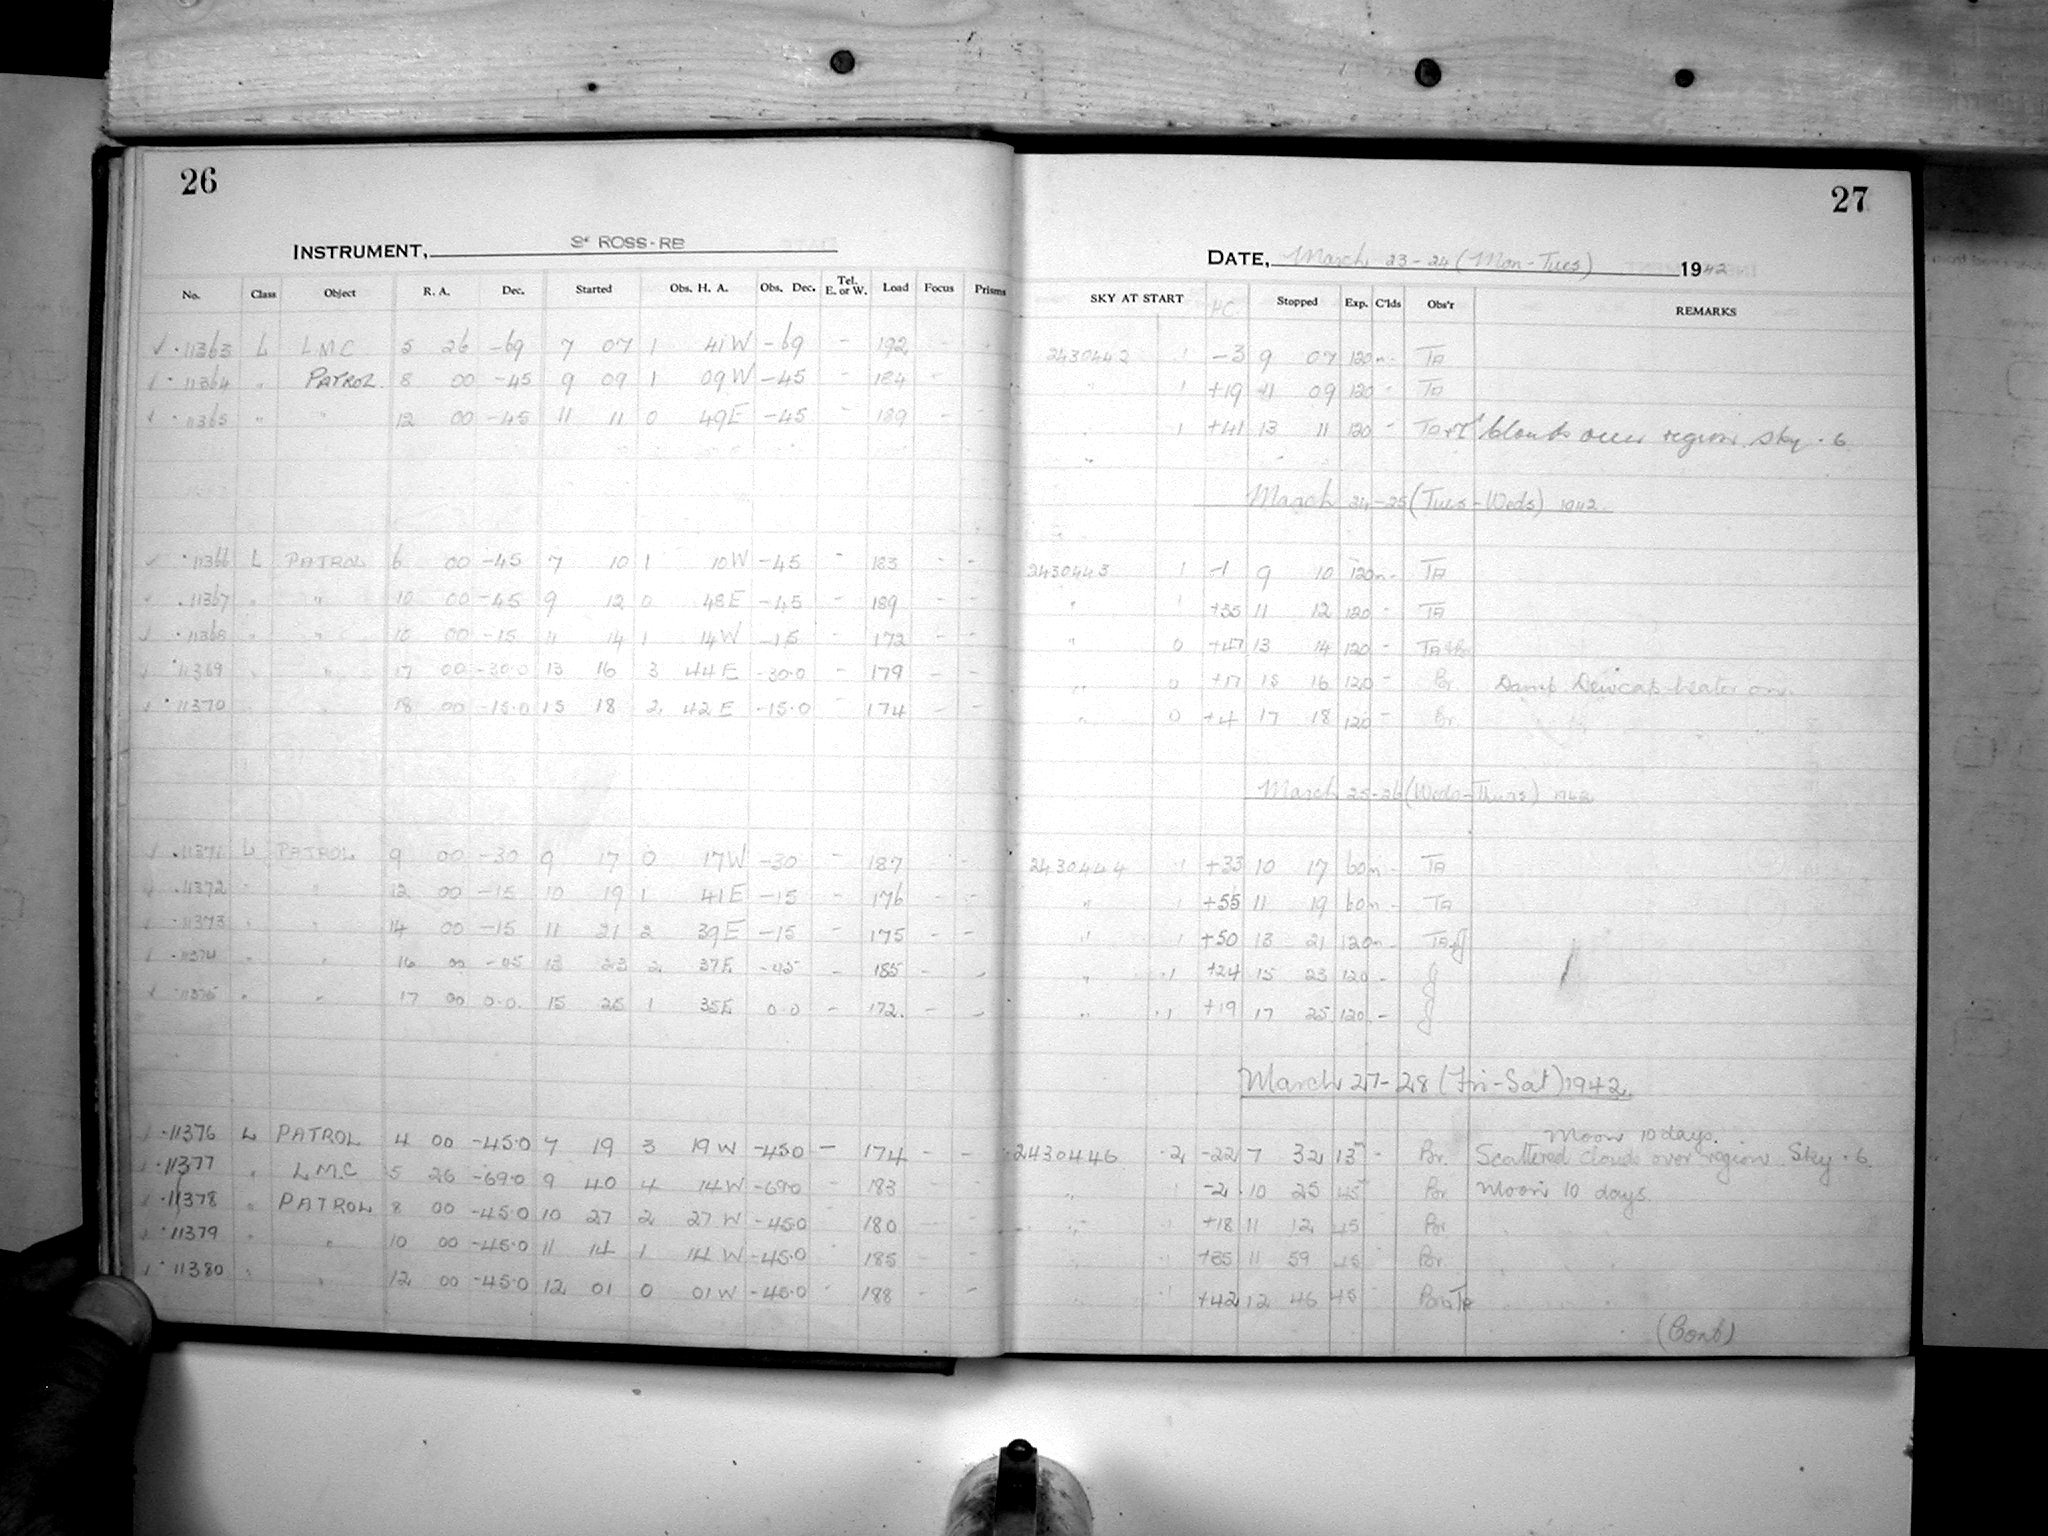 26
INSTRUMENT, ROSS-RB
No. Class Object R. A. Dec. Started Obs. H. A. Obs. Dec. Tel. E. or W. Load Focus Prisms
✓ .11363 L LMC 5 26 -69 7 07 1 41W -69 - 192 - -
✓ .11364 " PATROL 8 00 -45 9 09 1 09W -45 - 184 -
✓ .11365 " " 12 00 -45 11 11 0 49E -45 - 189 - -
✓ .11366 L PATROL 6 00 -45 7 10 1 10W -45 - 183 - -
.11367 " " 10 00 -45 9 12 0 48E -45 - 189 - -
✓ .11368 " " 10 00 -15 11 14 1 14W -15 - 172 - -
✓ .11369 " 17 00 -30.0 13 16 3 44E -30.0 - 179 - -
✓ .11370 " 18 00 -15.0 15 18 2 42E -15.0 - 174 - -
✓ .11371 L PATROL 9 00 -30 9 17 0 17W -30 - 187 -
.11372 " " 12 00 -15 10 19 1 41E -15 - 176 - -
.11373 " " 14 00 -15 11 21 2 39E -15 - 175 - -
.11374 " " 16 00 -45 13 23 2 37E -45 - 185 - -
.11375 " " 17 00 0.0 15 25 1 35E 0.0 - 172. - -
.11376 L PATROL 4 00 -45.0 7 19 3 19W -45.0 - 174 - -
.11377 " LMC 5 26 -69.0 9 40 4 14W -69.0 183
.11378 " PATROL 8 00 -45.0 10 27 2 27W -45.0 180
.11379 " " 10 00 -45.0 11 14 1 14W -45.0 185 -
.11380 " " 12 00 -45.0 12 01 0 01W -45.0 188 - -
27
DATE, March 23-24 (Mon-Tues) 1942
SKY AT START Stopped Exp. C'lds Obs'r REMARKS
2430442 1 -3 9 07 120m - TA
" 1 +19 11 09 120 - TA
1 +41 13 11 120 - clouds over region. Sky .6
March 24-25 (Tues-Weds) 1942
2430443 1 -1 9 10 120m - TA
" 1 +35 11 12 120 - TA
" 0 +47 13 14 120 -
" 0 +17 15 16 120 - Br. Damp Dewcap heater on.
" 0 +4 17 18 120 - Br.
March 25-26 (Weds-Thurs) 1942
2430444 1 +33 10 17 60m - TA
" 1 +55 11 19 60m - TA
" 1 +50 13 21 120m - TA+J
" .1 +24 15 23 120 - J
" .1 +19 17 25 120 - J
March 27-28 (Fri-Sat) 1942.
Moon 10 days.
2430446 .2 -22 7 32 13 - Br. Scattered clouds over region. Sky .6.
" 1 -2 10 25 45 Br. Moon 10 days.
" +18 11 12 45 Br.
+35 11 59 45 Br.
+42 12 46 45
(Cont)